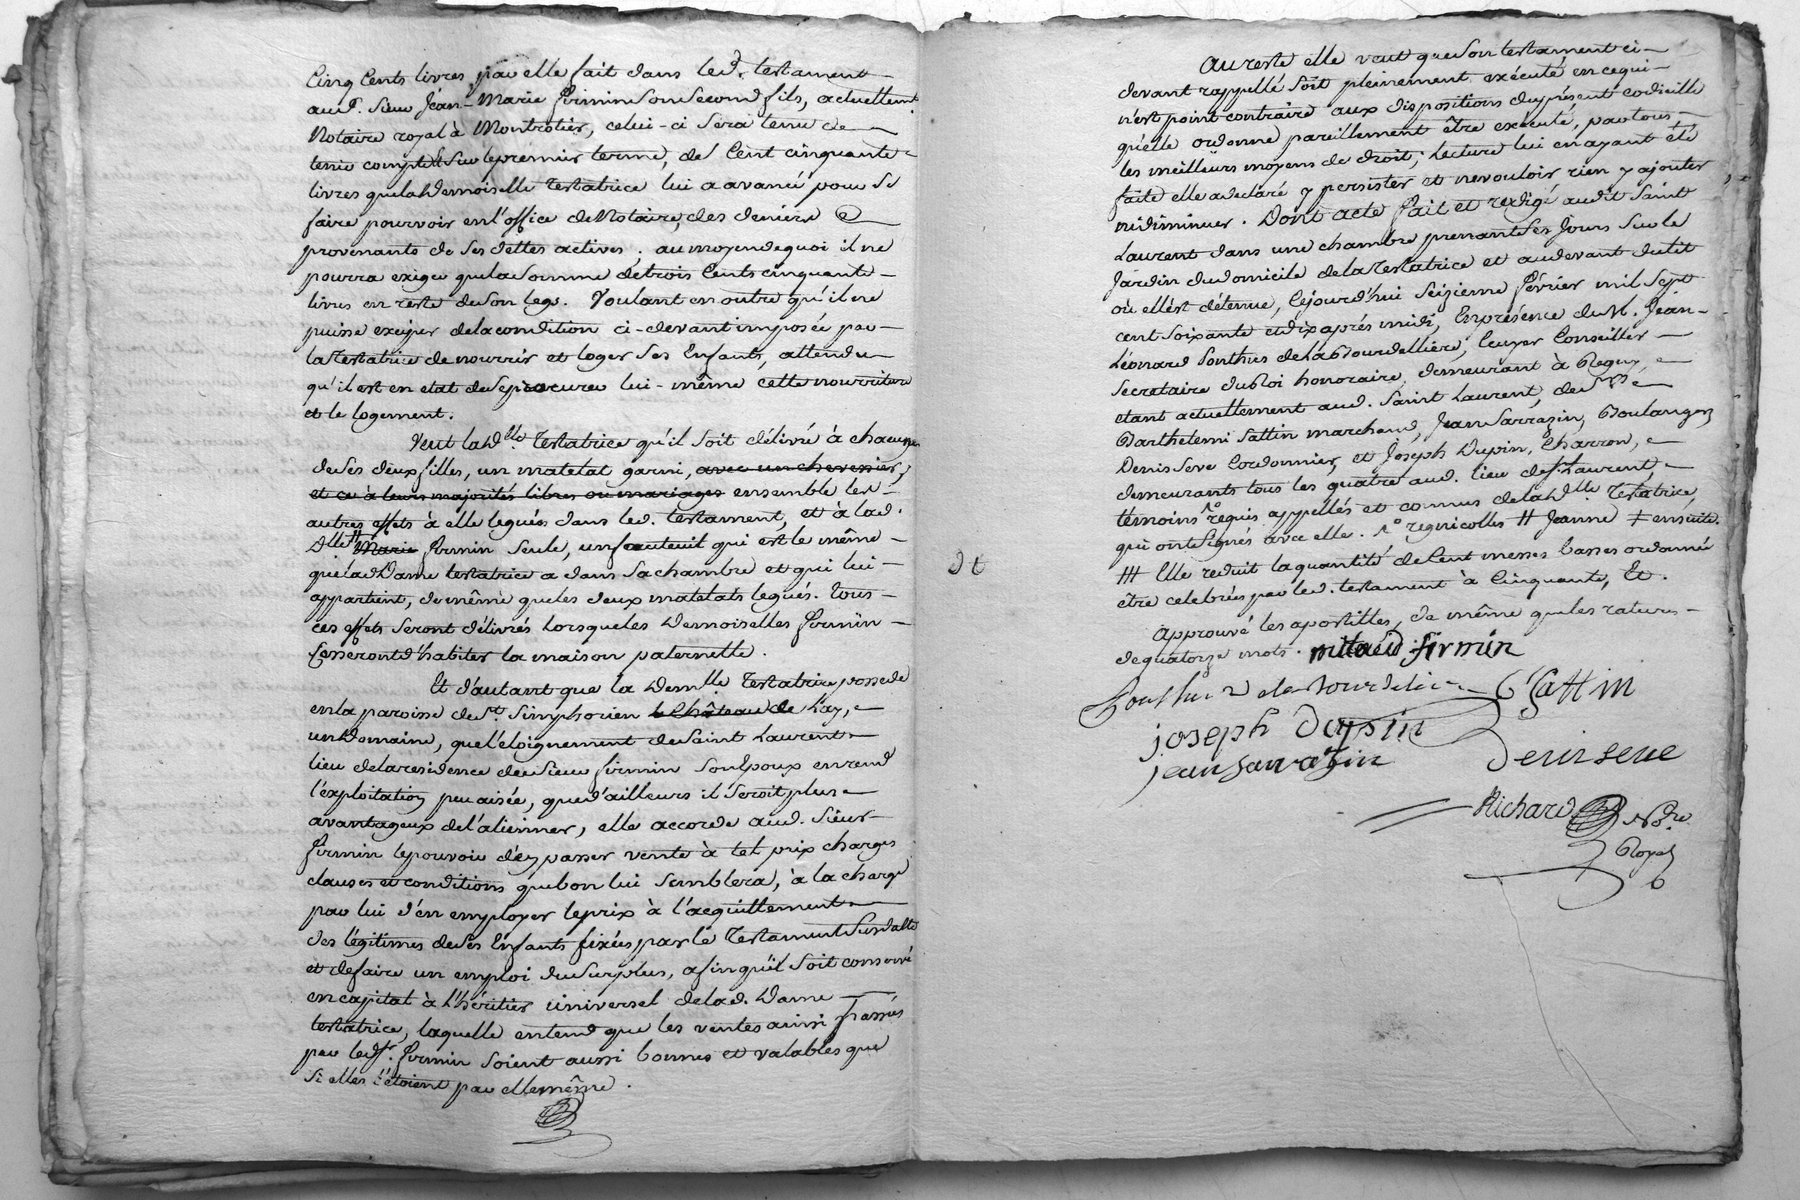 Cinq Cents livres par elle fait dans led. testament
aud. sieur Jean-Marie firmin son second fils, actuellemt.
Notaire royal à Montrotier, celui-ci sera tenu de
tenir compte sur le premier terme, de Cent cinquante
livres que lad. demoiselle testatrice lui a avancé pour se
faire pourvoir en l'office de Notaire, des deniers
provenants de ses dettes actives; au moyen de quoi il ne
pourra exiger que la somme de trois Cents cinquante
livres en reste de son legs. Voulant en outre qu'il ne
puisse exciper de la condition ci-devant imposée par
la testatrice de nourrir et loger ses Enfants, attendu
qu'il est en etat de se procurer lui-même cette nourriture
et le logement.
Veut lad. Dlle. testatrice qu'il soit délivré à chacune
de ses deux filles, un matelat garni, avec un chevessier,
et ce à leurs majorités libres ou mariages ensemble les
autres effets à elle legués dans led. testament, et à lad.
Dlle. # Marie firmin seule, un fauteuil qui est le même
que lad. Dame testatrice a dans sa chambre et qui lui
appartient, de même que les deux matelats legués. tous
ces effets seront délivrés lorsque les Demoiselles firmin
Cesseront d'habiter la maison paternelle.
Et d'autant que la Demlle. testatrice possede
en la paroisse de St. Simphorien le Château de Lay,
un Domaine, que l'éloignement de Saint Laurent
lieu de la residence du Sieur firmin son Epoux en rend
l'exploitation peu aisée, que d'ailleurs il seroit plus
avantageux de l'alienner, elle accorde aud. Sieur
firmin le pouvoir d'en passer vente à tel prix charges
clauses et conditions que bon lui semblera, à la charge
par lui d'en employer le prix à l'acquittement
des légitimes de ses Enfants fixées par le testament susdatté
et de faire un emploi du surplus, afin qu'il soit conservé
en capital à l'héritier universel de lad. Dame
testatrice, laquelle entend que les ventes ainsi passées
par led. Sr. firmin soient aussi bonnes et valables que
si elles l'étoient par elle même.
Au reste elle veut que son testament ci-
devant rappellé soit pleinement exécuté en ce qui
n'est point contraire aux dispositions du présent codicille
qu'elle ordonne pareillement être executé, par tous
les meilleurs moyens de droit; Lecture lui en ayant été
faite elle a declaré y persister et ne vouloir rien y ajouter
ni diminuer. Dont acte fait et redigé audit Saint
Laurent dans une chambre prenant ses Jours sur le
Jardin du domicile de la testatrice et au devant du lit
où elle est détenue, Cejourd'hui Seizieme février mil sept
cent soixante et dix après midi, En présence de M. Jean-
Léonard Ponthus de la Bourdelliere, Ecuyer Conseiller
Secretaire du Roi honoraire, demeurant à Regny,
etant actuellement aud. Saint Laurent, de Sr.
Barthelemi Sattin marchand, Jean Sarrazin, Boulanger,
Denis Seve Cordonnier, et Joseph Dupin, Charron,
demeurants tous les quatre aud. lieu de St. Laurent,
temoins requis appellés et connus de lad. Dlle testatrice,
qui ont signés avec elle. regnicolles # Jeanne ≠ ensuite.
### Elle reduit la quantité de Cent messes basses ordonnée
être celebrées par led. testament à Cinquante, Et.
Approuvé les apostilles, de même que les ratures
de quatorze mots. milaud firmin
Ponthus de la bourdeliere B Sattin
joseph dupin
jean sarrazin Denis seve
Richard No.re
Royal